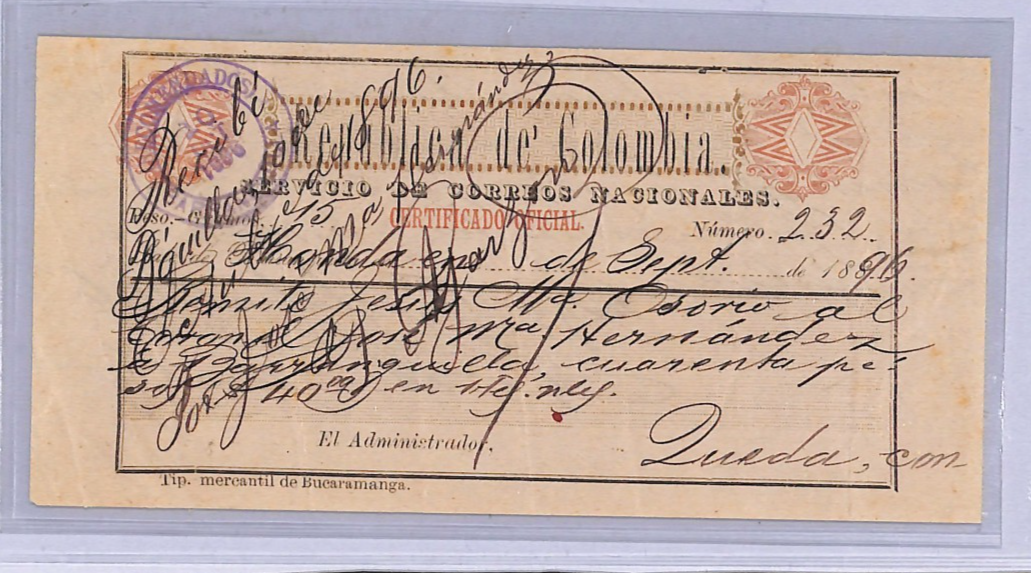 RECOMENDADOS
República de Colombia.
SERVICIO DE CORREOS NACIONALES.
CERTIFICADO OFICIAL.
Peso.—Gramos. 15 Número. 232.
Honda en de Sept. de 1896.
Remite Jesús Ma. Osorio al
José Ma Hernández
Barranquilla, cuarenta pe-
sos $ 40 00 en
El Administrador,
Queda, con
Tip. mercantil de Bucaramanga.
Recibí
Bquilla 1896.
José Ma Hernández